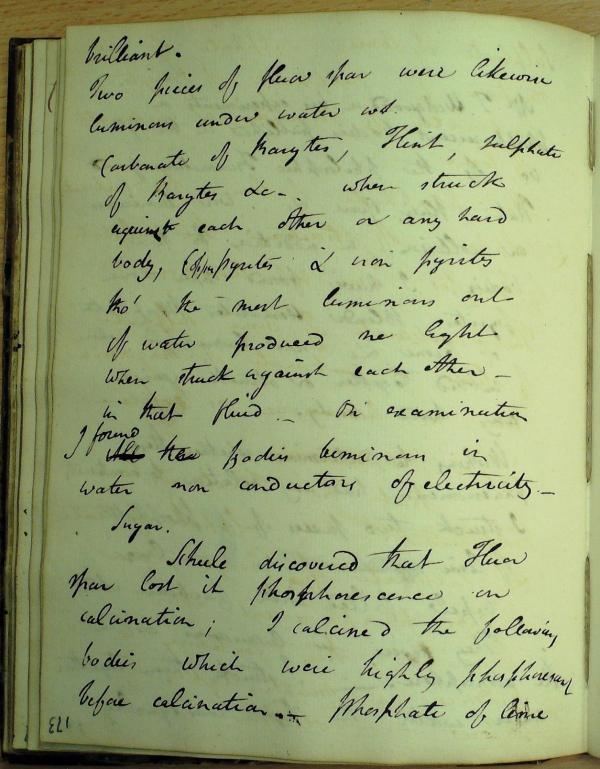 brilliant.
Two pieces of fluor spar were likewise
luminous under water
Carbonate of Barytes, Flint, sulphate
of Barytes &c -. when struck
against each other or any hard
body, Copper pyrites & iron pyrites
tho' the most luminous out
of water produced no light
when struck against each other -
in that fluid _ On examination
I found
All the bodies luminous in
water non conductors of electricity. _
Sugar.
Scheele discovered that Fluor
spar lost it phosphorescence on
calcination; I calcined the following
bodies which were highly phosphorescent
before calcination. - Phosphate of Lime
173